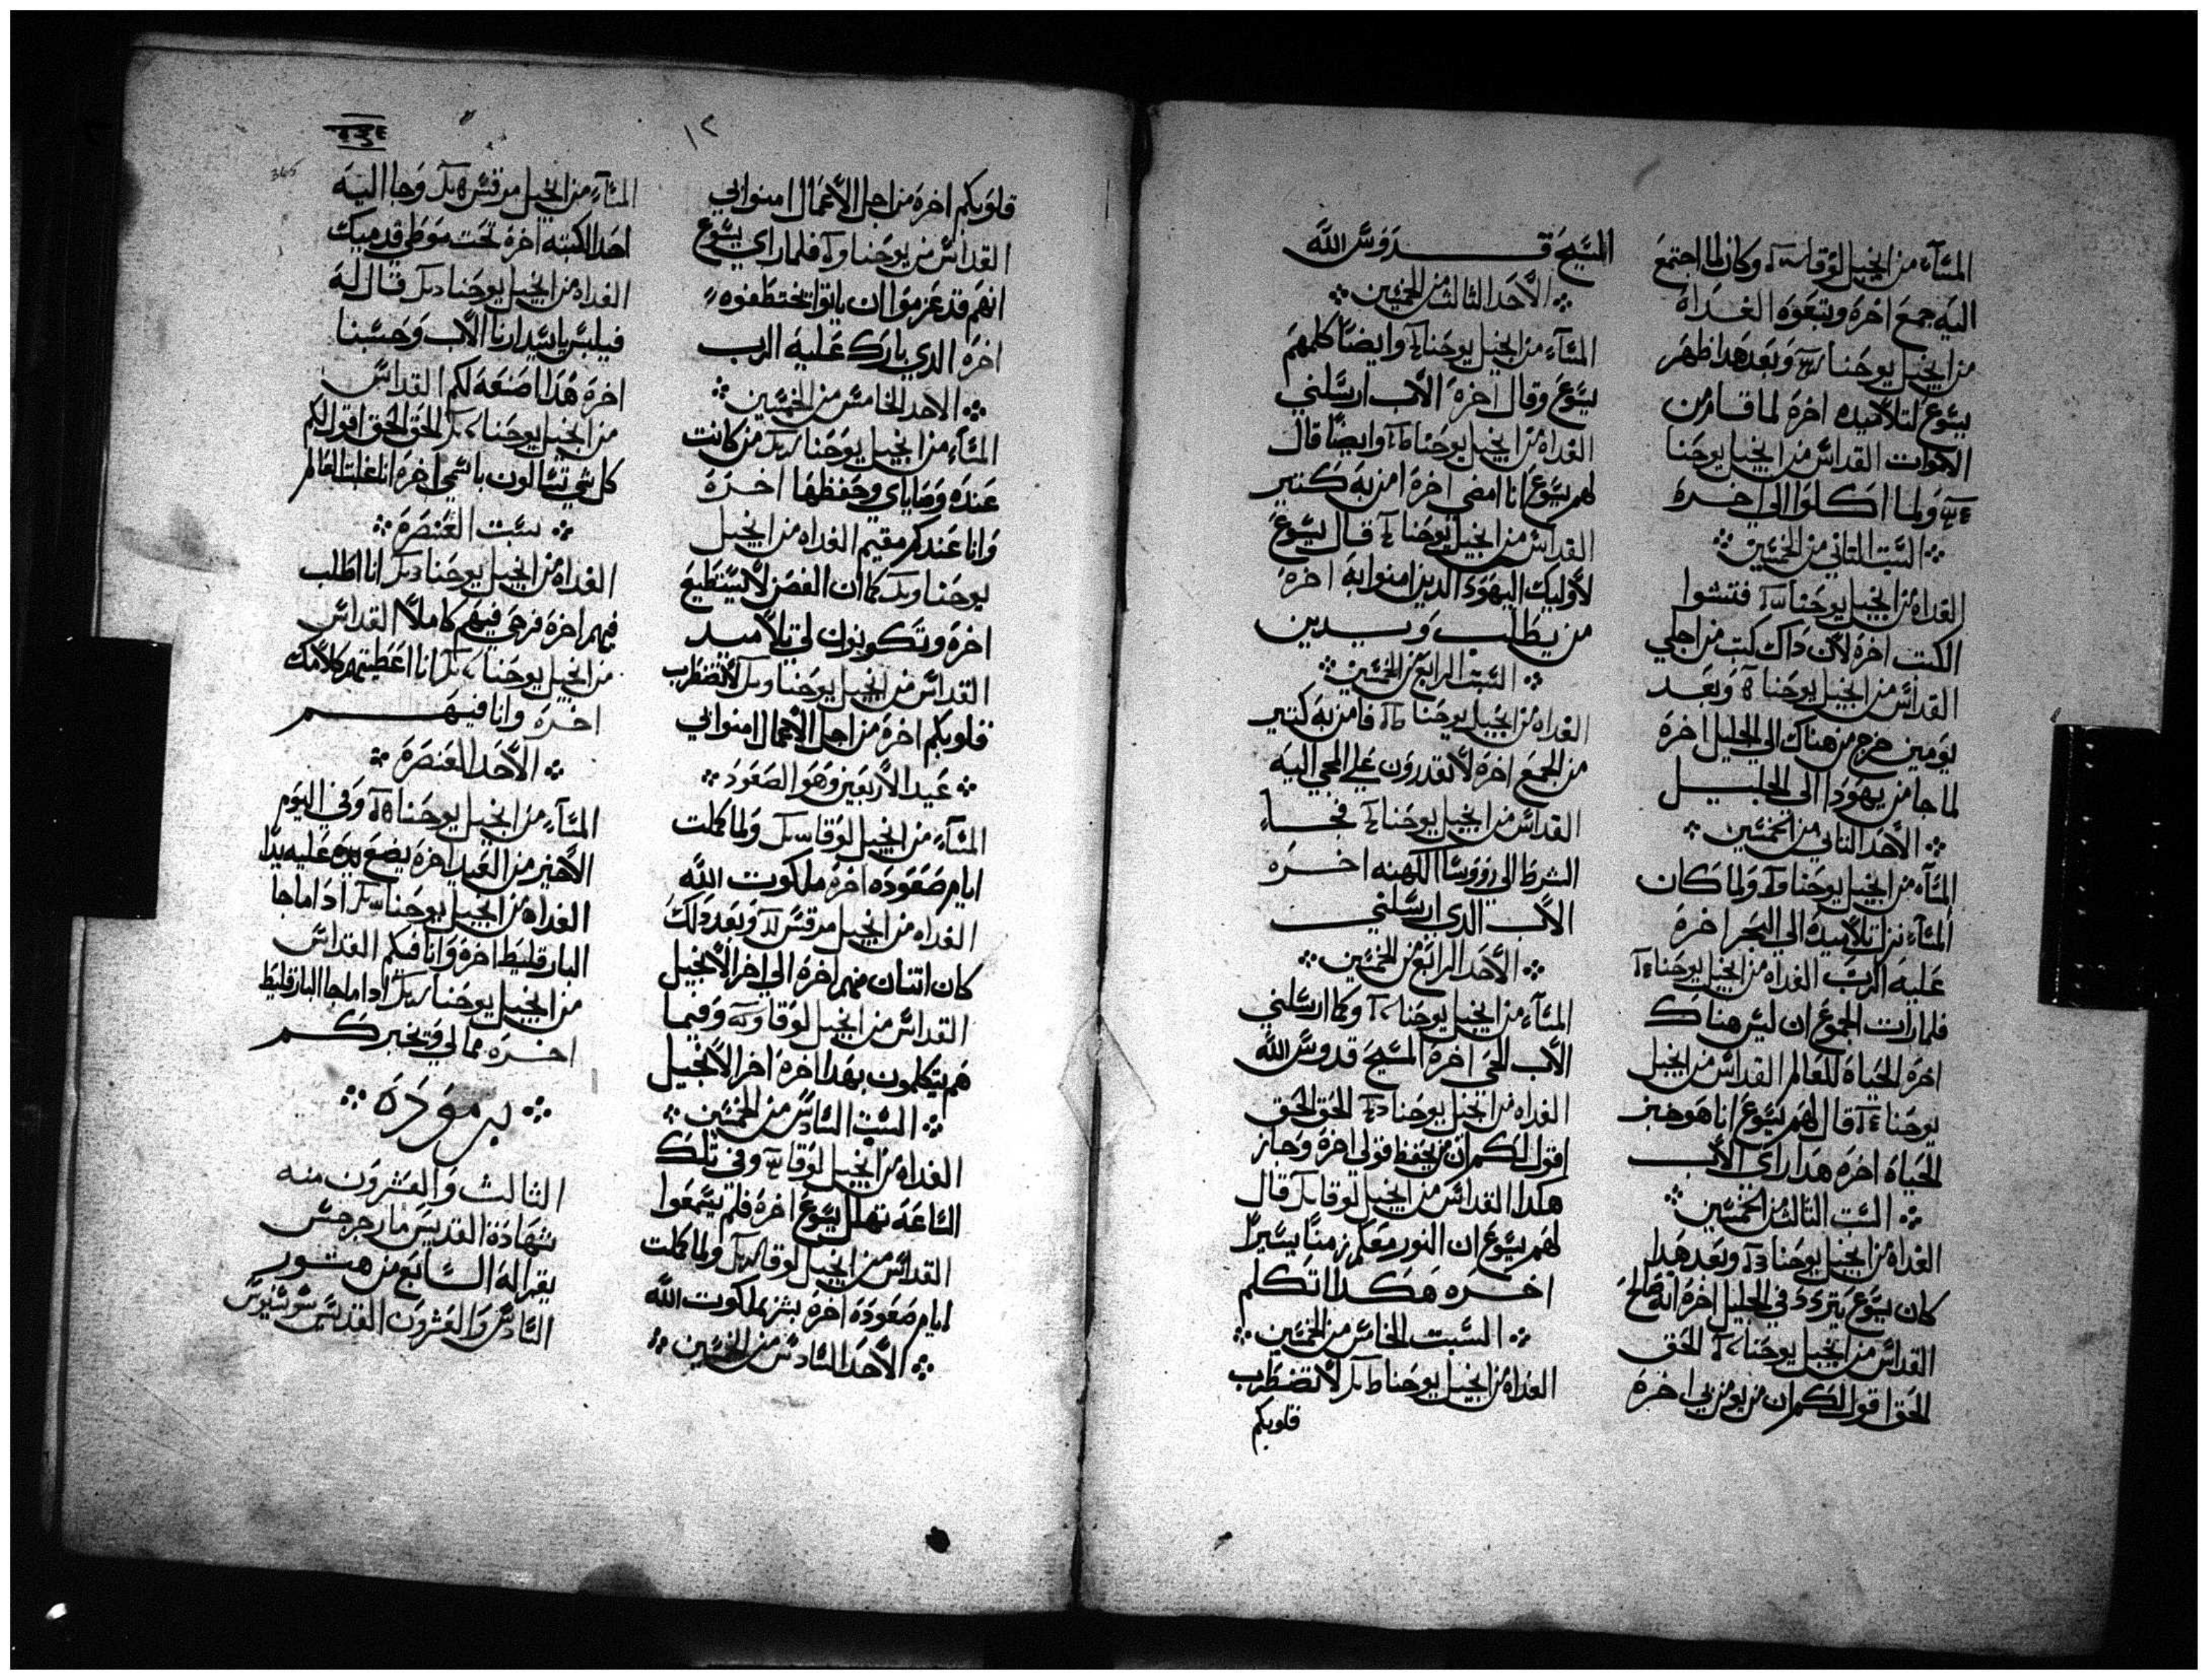 المسآء من انجيل لوقا وكان لما اجتمع
اليه جمع اخره وتبعوه الغداة
من انجيل يوحنا وبعد هدا ظهر
يسوع لتلاميده اخرة لما قام من
الاموات القداس من انجيل يوحنا
ولما اكلوا الي اخره
السبت التاني من الخمسين
الغداه من انجيل يوحنا فتشوا
الكتب اخرة لان داك كتب من اجلي
القداس من انجيل يوحنا وبعد
يومين خرج من هناك الي الجليل اخرة
لما جا من يهودا الي الجليل
الأحد التاني من الخمسين
المسآء من انجيل يوحنا ولما كان
المسآء نزل تلاميده الي البحر اخرة
عليه الرب الغداه من انجيل يوحنا
فلما رات الجموع ان ليس هناك
اخرة الحياة للعالم القداس من انجيل
يوحنا قال لهم يسوع انا هو خبز
الحياة اخره هدا راي الاب
السبت التالت من الخمسين
الغداه من انجيل يوحنا وبعد هدا
كان يسوع يتردد في الجليل اخرة انه صالح
القداس من انجيل يوحنا الحق
الحق اقول لكم ان من يومن بي اخرة
المسيح قدوس الله
الأحد الثالث من الخمسين
المسآء من انجيل يوحنا وايضًا كلمهم
يسوع وقال اخرة الاب ارسلني
الغداه من انجيل يوحنا وايضًا قال
لهم يسوع انا امضي اخرة امن به كتير
القداس من انجيل يوحنا قال يسوع
لأوليك اليهود الدين امنوا به اخرة
من يطلب ويدين
السبت الرابع من الخمسين
الغداه من انجيل يوحنا فامن به كتير
من الجمع اخرة لا تقدرون علي المجي اليه
القداس من انجيل يوحنا فجاء
الشرط الي رووسا الكهنه اخره
الأب الدي ارسلني
الأحد الرابع من الخمسين
المسآء من انجيل يوحنا وكما ارسلني
الأب الحي اخرة المسيح قدوس الله
الغداه من انجيل يوحنا الحق الحق
اقول لكم ان من يحفظ قولي اخرة وجاز
هكدا القداس من انجيل لوقا قال
لهم يسوع ان النور معكم زمنًا يسيرًا
اخره هكدا اتكلم
السبت الخامس من الخمسين
الغداه من انجيل يوحنا لا تضطرب
قلوبكم
١٢
قلوبكم اخرة من اجل الأعمال امنوا بي
القداس من يوحنا فلما راي يسوع
انهم قد عزموا ان ياتوا يختطفوه
اخرة الدي بارك عليه الرب
الاحد الخامس من الخمسين
المسآء من انجيل يوحنا من كانت
عنده وصاياي وحفظها اخرة
وانا عندكم مقيم الغداه من انجيل
يوحنا كما ان الغصن لا يستطيع
اخرة وتكونون لي تلاميد
القداس من انجيل يوحنا لا تضطرب
قلوبكم اخرة من اجل الأعمال امنوا بي
عيد الأربعين وهو الصعود
المسآء من انجيل لوقا ولما كملت
ايام صعوده اخرة ملكوت الله
الغداه من انجيل مرقس وبعد دلك
كان اتنان منهم اخرة الي اخر الأنجيل
القداس من انجيل لوقا وفيما
هم يتكلمون بهدا اخرة اخر الأنجيل
السبت السادس من الخمسين
الغداه من انجيل لوقا وفي تلك
الساعة تهلل يسوع اخرة فلم يسمعوا
القداس من انجيل لوقا ولما كملت
ايام صعودة اخرة بشر بملكوت الله
الأحد السادس من الخمسين
365
المسآء من انجيل مرقس وجا اليه
احد الكتبه اخرة تحت موطي قدميك
الغداه من انجيل يوحنا قال له
فيلبس ياسيد ارنا الأب وحسبنا
اخرة هدا اصنعه لكم القداس
من انجيل يوحنا الحق الحق اقول لكم
كل شي تسالون باسمي اخرة انا غلبت العالم
سبت العنصرة
الغداه من انجيل يوحنا انا اطلب
فيهم اخرة فرحي فيهم كاملًا القداس
من انجيل يوحنا انا اعطيتهم كلامك
اخرة وانا فيهم
الأحد العنصرة
المسآء من انجيل يوحنا وفي اليوم
الأخير من العيد اخرة يضع يده عليه يدًا
الغداه من انجيل يوحنا ادا ما جا
البارقليط اخرة وانا فيكم القداس
من انجيل يوحنا ادا ما جا البارقليط
اخره مما لي وتخبركم
برمودة
الثالث والعشرون منه
شهادة القديس مارجرجس
يقرا له السابع من هتور
السادس والعشرون القديس سوسنيوس